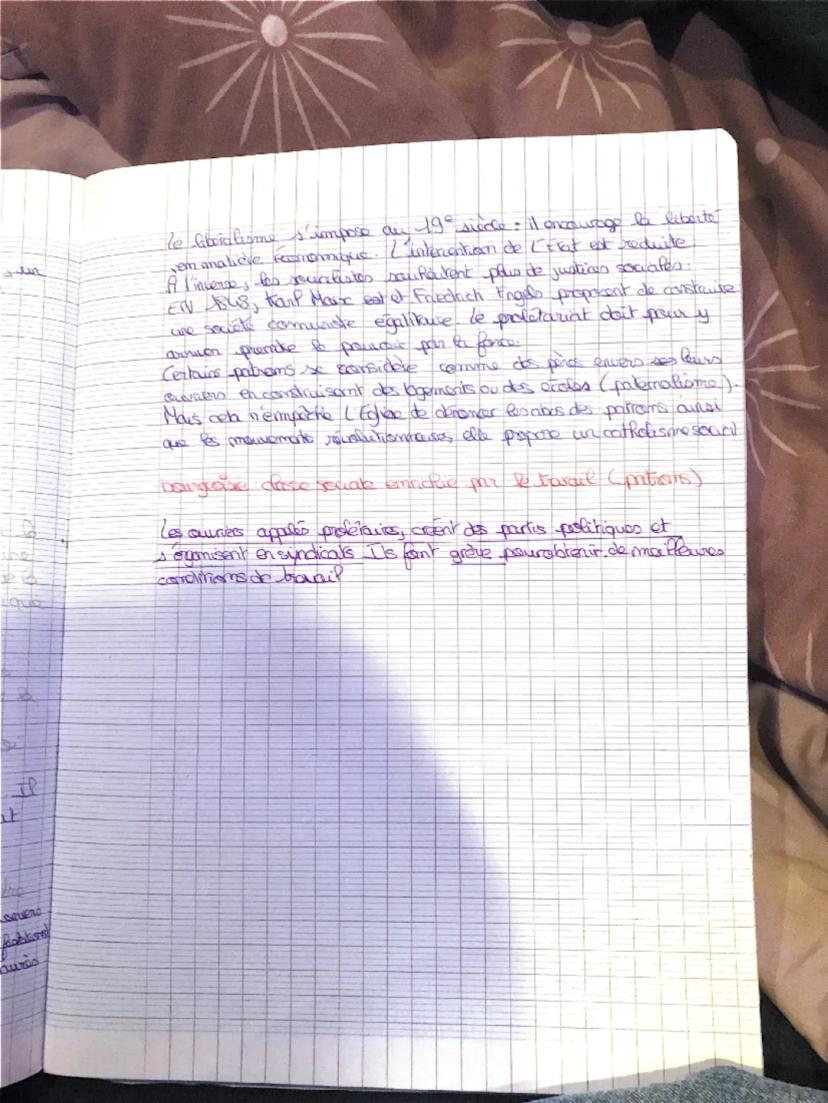 Le libéralisme s'impose au 19e siècle : il encourage la liberté
en matière économique. L'intervention de l'État est réduite
À l'inverse, les socialistes souhaitent plus de justices sociales.
EN 1848, Karl Marx est et Friedrich Engels proposent de construire
une société communiste égalitaire. Le prolétariat doit pour y
arriver prendre le pouvoir par la force.
Certains patrons se considère comme des pères envers leurs
ouvriers en construisant des logements ou des écoles (paternalisme).
Mais cela n'empêche l'Église de dénoncer les abus des patrons ainsi
que les mouvements révolutionnaires elle propose un catholisme social
bourgeoise classe sociale enrichie par le travail (patrons)
Les ouvriers appelés prolétaires, créent des partis politiques et
s'organisent en syndicats Ils font grève pour obtenir de meilleures
conditions de travail
sur
Il